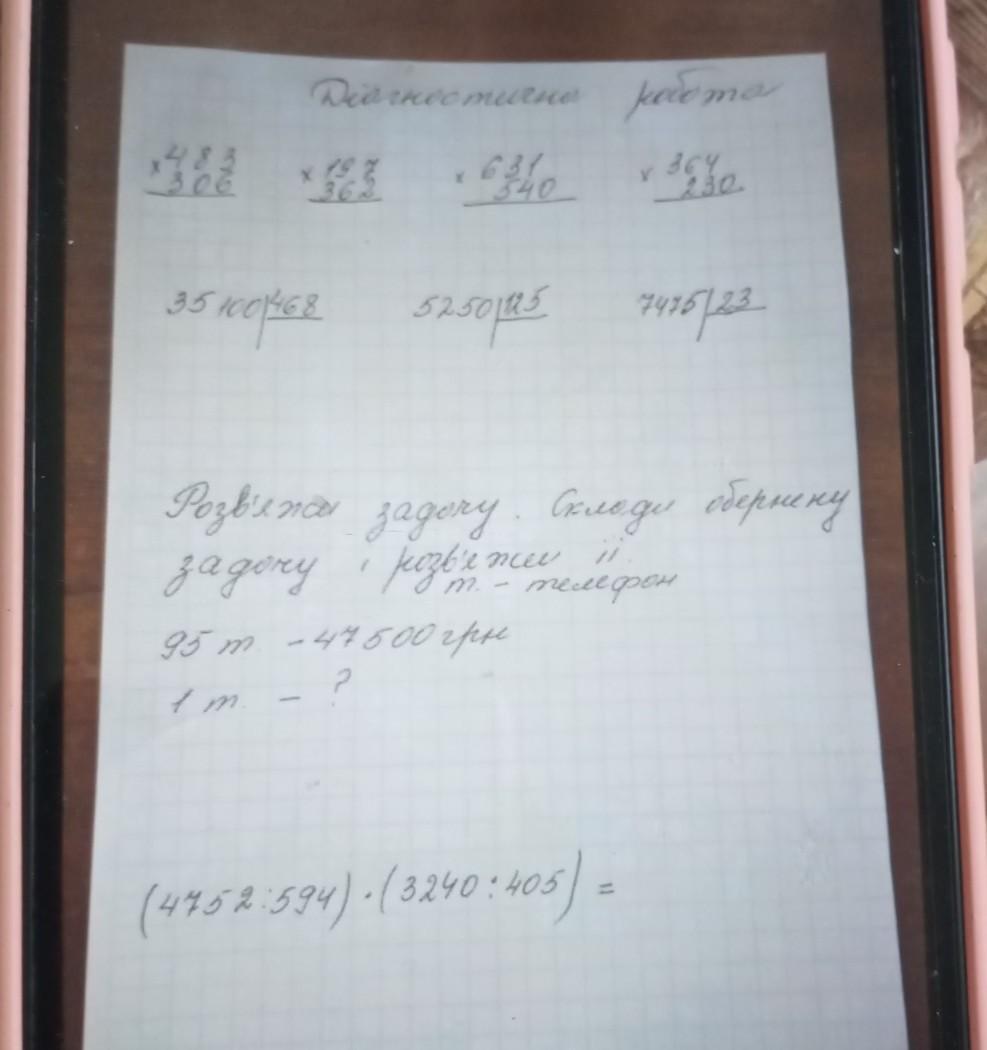 Діагностична робота
×483 ×197 ×631 ×364
306 362 540 230
35100|468 5250|125 7475|23
Розв'яжи задачу. Склади обернену
задачу і розв'яжи її.
т. - телефон
95 т. - 47500 грн
1 т. - ?
(4752:594)·(3240:405)=